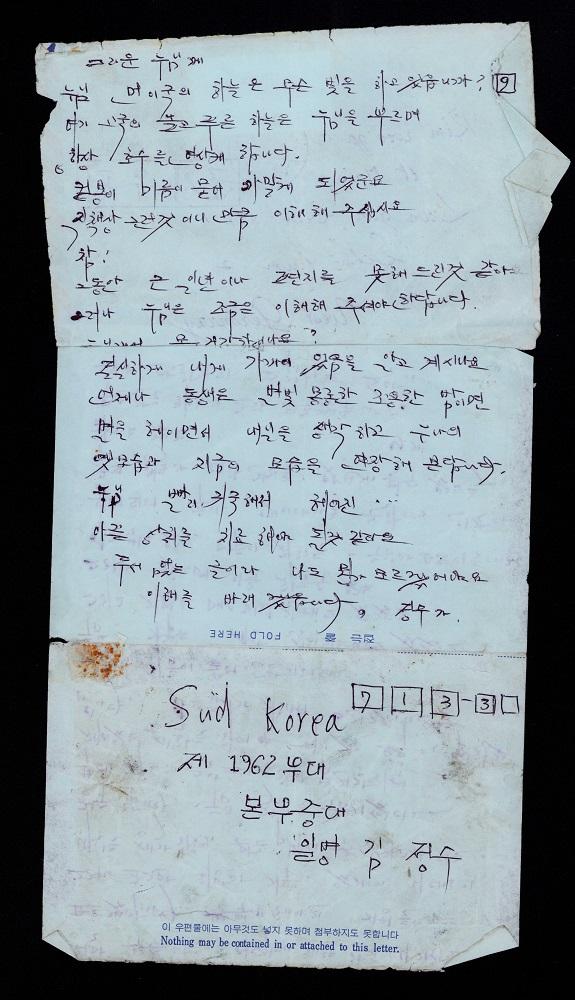 그리운 누님께
누님 먼 이국의 하늘은 무슨 빛을 하고 있읍니까? 9
여기 고국의 높고 푸른 하늘은 누님을 부르며
항상 호수를 연상케 합니다.
이
직책상 그런것이니 이해해 주십시요
참!
그동안 근 일년이나 편지를 못해 드린것 같아요
그러나 누님은 조금은 이해해 주셔야 한답니다.
절실하게 내게 있음을 알고 계시나요
언제나 동생은 별빛 조용한 밤이면
별을 헤이면서 내일을 생각하고 누나의
옛모습과 지금의 모습을 연상해 본답니다.
누님 빨리 귀국해서 헤어진 ...
아픈 상처를 치료해야 될것 같아요
두서 없는 글이라 나도 뭔지 모르겠어요
이해를 바래겠읍니다. 정수가.
접는 줄 FOLD HERE
Süd Korea 713-3
제 1962 부대
본부중대
일병 김 정수
이 우편물에는 아무것도 넣지 못하며 첨부하지도 못합니다
Nothing may be contained in or attached to this letter.